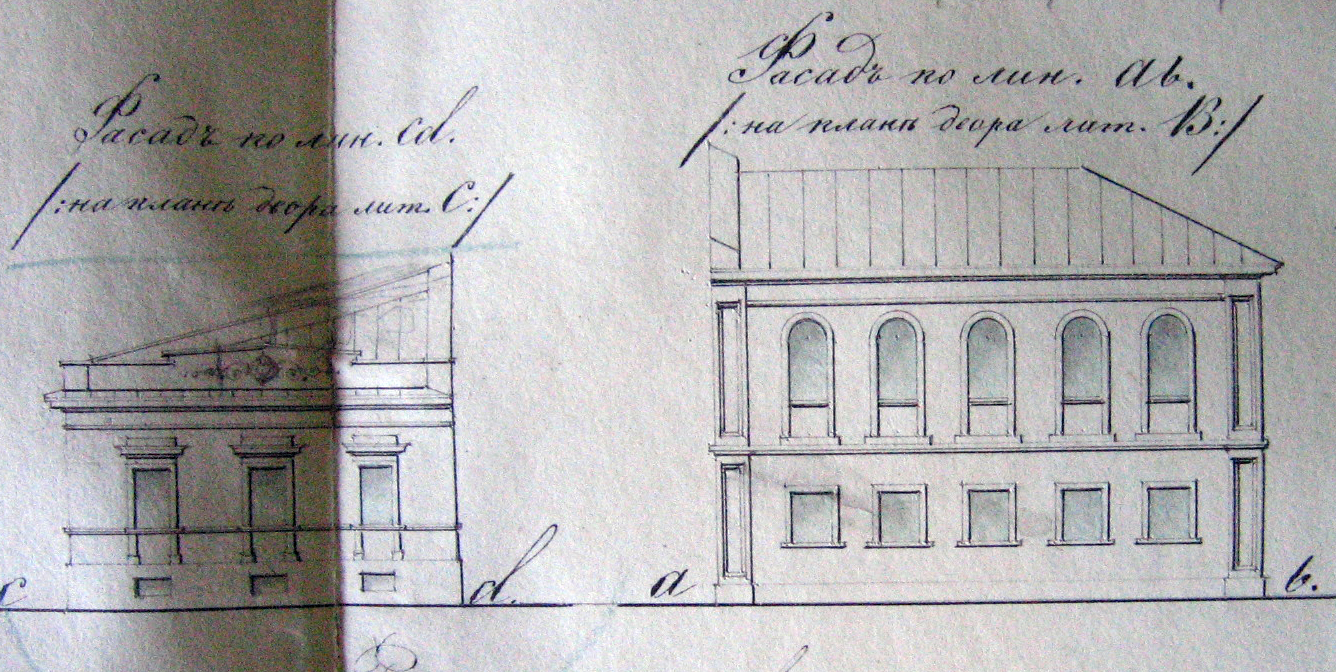 Фасадъ по лин. cd.
/:на планѣ двора лит. C:/
c
d.
Фасадъ по лин. ab.
/:на планѣ двора лит. B:/
a
b.